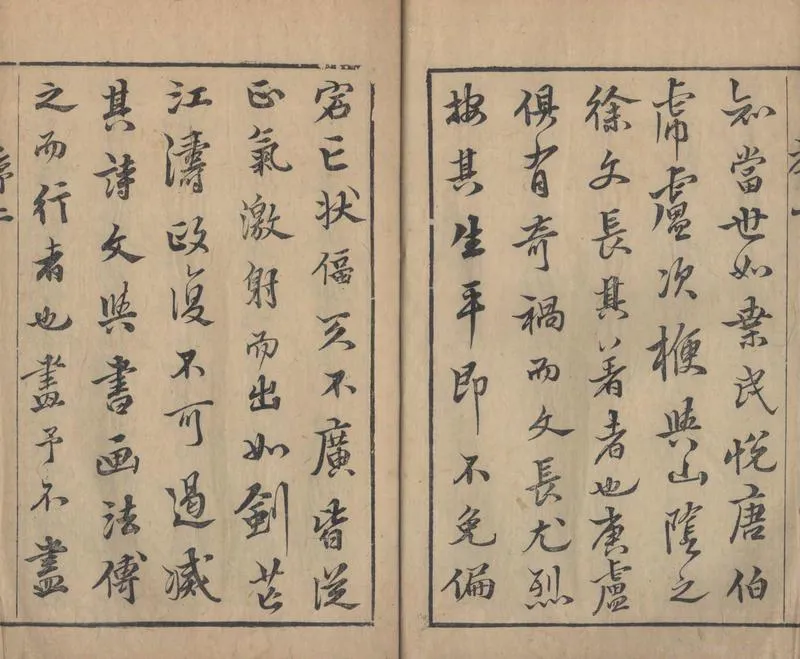 知當世如桒民悅唐伯
乕盧次楩與山陰之
徐文長其著者也唐盧
俱有奇禍而文長尤烈
按其生平即不免偏
宕亡狀偪仄不廣皆從
正氣激射而出如劍芒
江濤政復不可遏滅
其詩文與書画法傳
之而行者也盡予不盡
序二